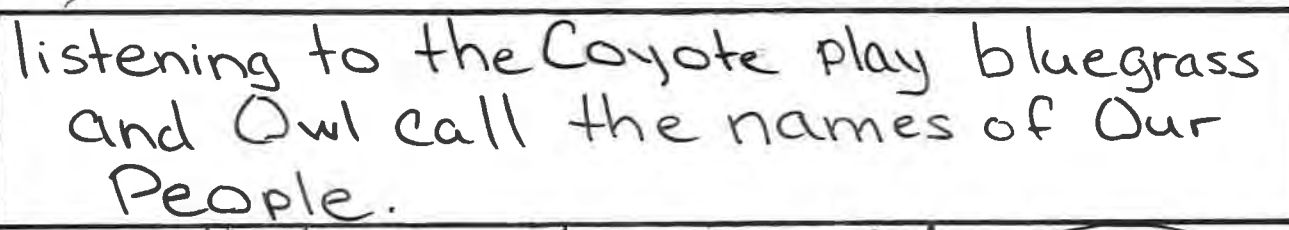 listening to the Coyote play bluegrass
and Owl call the names of Our
People.